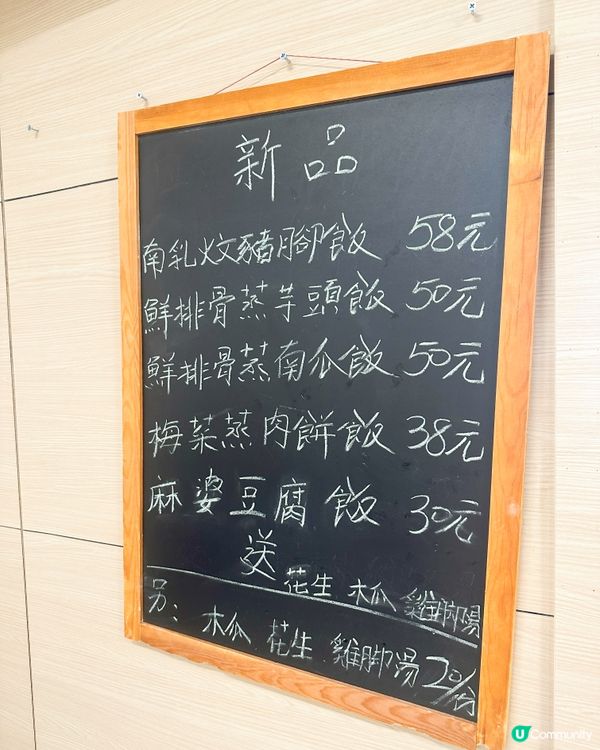 新品
南乳炆豬腳飯 58元
鮮排骨蒸芋頭飯 50元
鮮排骨蒸南瓜飯 50元
梅菜蒸肉餅飯 38元
麻婆豆腐飯 30元
送
花生 木瓜 雞腳湯
另：木瓜 花生 雞腳湯 20/份
U Community